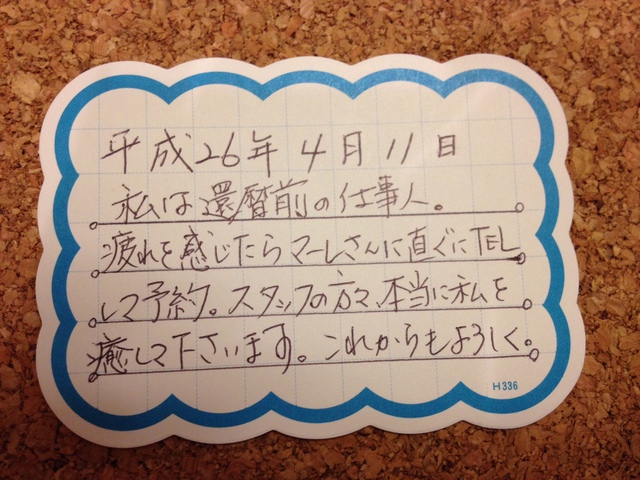 平成26年4月11日
私は還暦前の仕事人。
疲れを感じたらマーレさんに直ぐにTEL
して予約。スタッフの方々、本当に私を
癒して下さいます。これからもよろしく。
H336